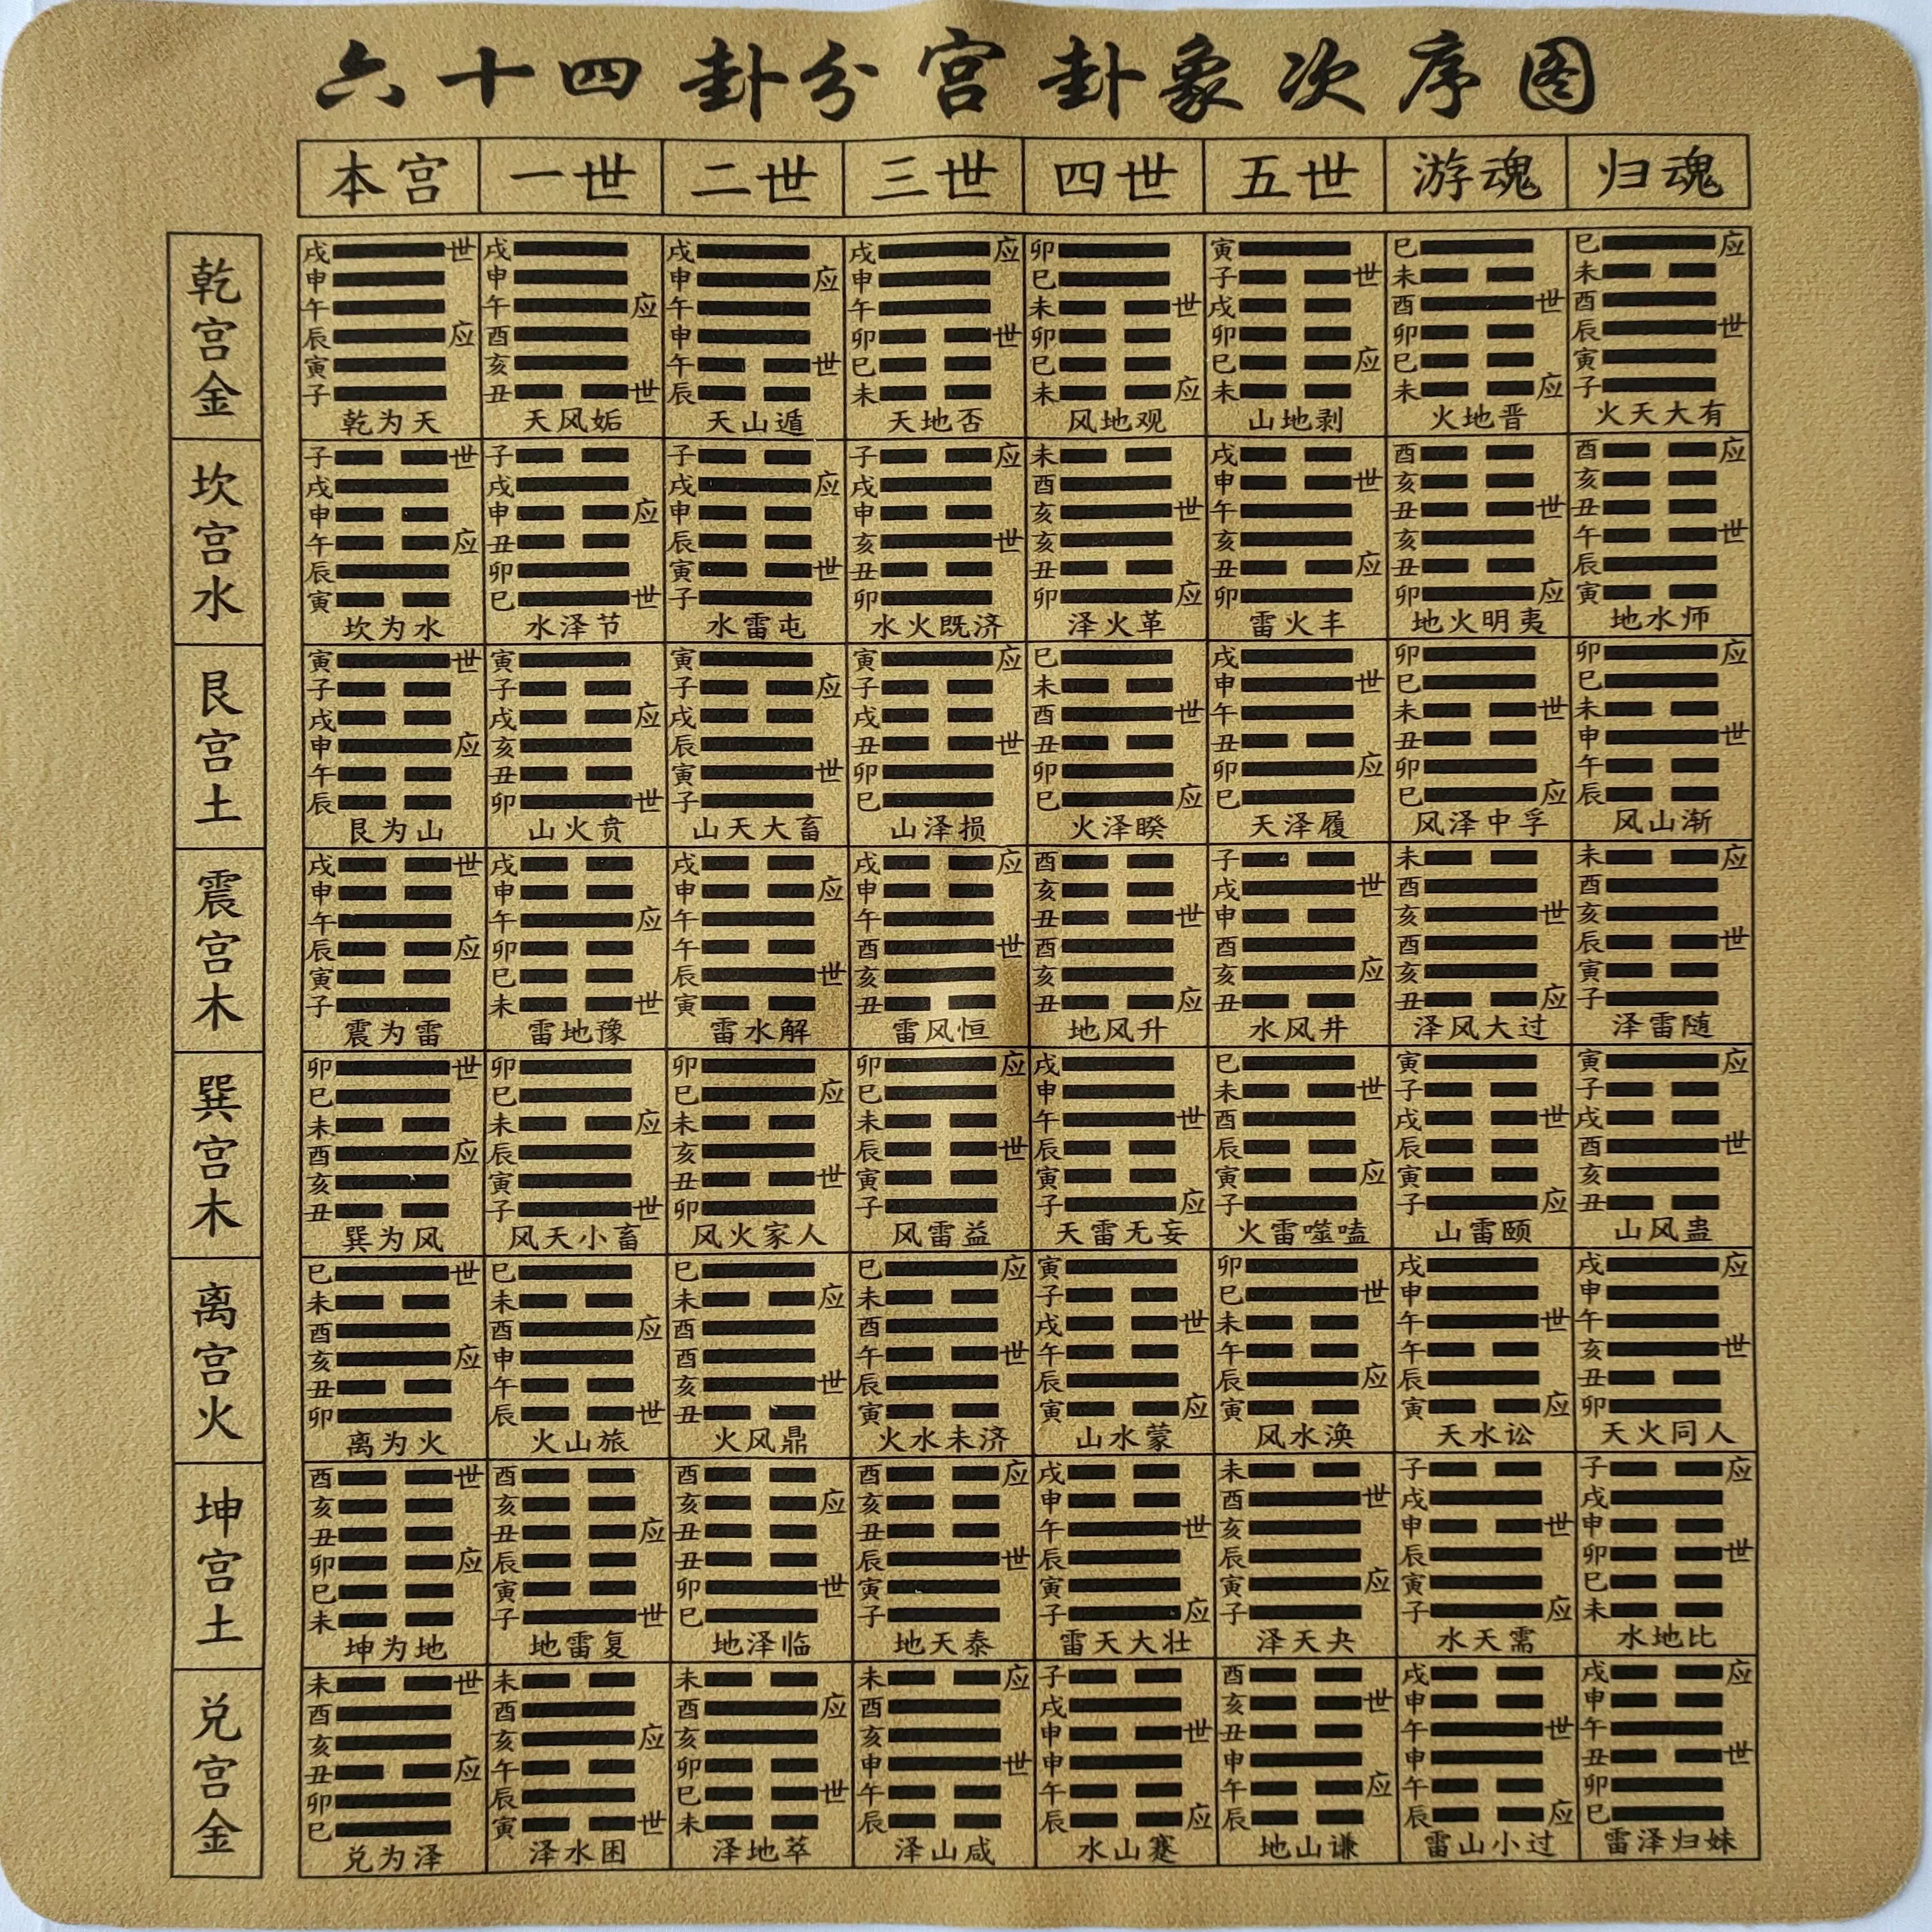 六十四卦分宫卦象次序图
本宫 一世 二世 三世 四世 五世 游魂 归魂
乾宫金
戌 世 戌 戌 戌 应 卯 寅 巳 巳 应
申 申 申 应 申 巳 子 世 未 未
午 午 应 午 午 未 世 戌 酉 世 酉
辰 应 酉 申 卯 世 卯 卯 卯 辰 世
寅 亥 午 世 巳 巳 巳 应 巳 寅
子 丑 世 辰 未 未 应 未 未 应 子
乾为天 天风姤 天山遁 天地否 风地观 山地剥 火地晋 火天大有
坎宫水
子 世 子 子 子 应 未 戌 酉 酉 应
戌 戌 戌 应 戌 酉 申 世 亥 亥
申 申 应 申 申 亥 世 午 丑 世 丑
午 应 丑 辰 亥 世 亥 亥 亥 午 世
辰 卯 寅 世 丑 丑 丑 应 丑 辰
寅 巳 世 子 卯 卯 应 卯 卯 应 寅
坎为水 水泽节 水雷屯 水火既济 泽火革 雷火丰 地火明夷 地水师
艮宫土
寅 世 寅 寅 寅 应 巳 戌 卯 卯 应
子 子 子 应 子 未 申 世 巳 巳
戌 戌 应 戌 戌 酉 世 午 未 世 未
申 应 亥 辰 丑 世 丑 丑 丑 申 世
午 丑 寅 世 卯 卯 卯 应 卯 午
辰 卯 世 子 巳 巳 应 巳 巳 应 辰
艮为山 山火贲 山天大畜 山泽损 火泽睽 天泽履 风泽中孚 风山渐
震宫木
戌 世 戌 戌 戌 应 酉 子 未 未 应
申 申 申 应 申 亥 戌 世 酉 酉
午 午 应 午 午 丑 世 申 亥 世 亥
辰 应 卯 午 酉 世 酉 酉 酉 辰 世
寅 巳 辰 世 亥 亥 亥 应 亥 寅
子 未 世 寅 丑 丑 应 丑 丑 应 子
震为雷 雷地豫 雷水解 雷风恒 地风升 水风井 泽风大过 泽雷随
巽宫木
卯 世 卯 卯 卯 应 戌 巳 寅 寅 应
巳 巳 巳 应 巳 申 未 世 子 子
未 未 应 未 未 午 世 酉 戌 世 戌
酉 应 辰 亥 辰 世 辰 辰 辰 酉 世
亥 寅 丑 世 寅 寅 寅 应 寅 亥
丑 子 世 卯 子 子 应 子 子 应 丑
巽为风 风天小畜 风火家人 风雷益 天雷无妄 火雷噬嗑 山雷颐 山风蛊
离宫火
巳 世 巳 巳 巳 应 寅 卯 戌 戌 应
未 未 未 应 未 子 巳 世 申 申
酉 酉 应 酉 酉 戌 世 未 午 世 午
亥 应 申 酉 午 世 午 午 午 亥 世
丑 午 亥 世 辰 辰 辰 应 辰 丑
卯 辰 世 丑 寅 寅 应 寅 寅 应 卯
离为火 火山旅 火风鼎 火水未济 山水蒙 风水涣 天水讼 天火同人
坤宫土
酉 世 酉 酉 酉 应 戌 未 子 子 应
亥 亥 亥 应 亥 申 酉 世 戌 戌
丑 丑 应 丑 丑 午 世 亥 申 世 申
卯 应 辰 丑 辰 世 辰 辰 辰 卯 世
巳 寅 卯 世 寅 寅 寅 应 寅 巳
未 子 世 巳 子 子 应 子 子 应 未
坤为地 地雷复 地泽临 地天泰 雷天大壮 泽天夬 水天需 水地比
兑宫金
未 世 未 未 未 应 子 酉 戌 戌 应
酉 酉 酉 应 酉 戌 亥 世 申 申
亥 亥 应 亥 亥 申 世 丑 午 世 午
丑 应 午 卯 申 世 申 申 申 丑 世
卯 辰 巳 世 午 午 午 应 午 卯
巳 寅 世 未 辰 辰 应 辰 辰 应 巳
兑为泽 泽水困 泽地萃 泽山咸 水山蹇 地山谦 雷山小过 雷泽归妹